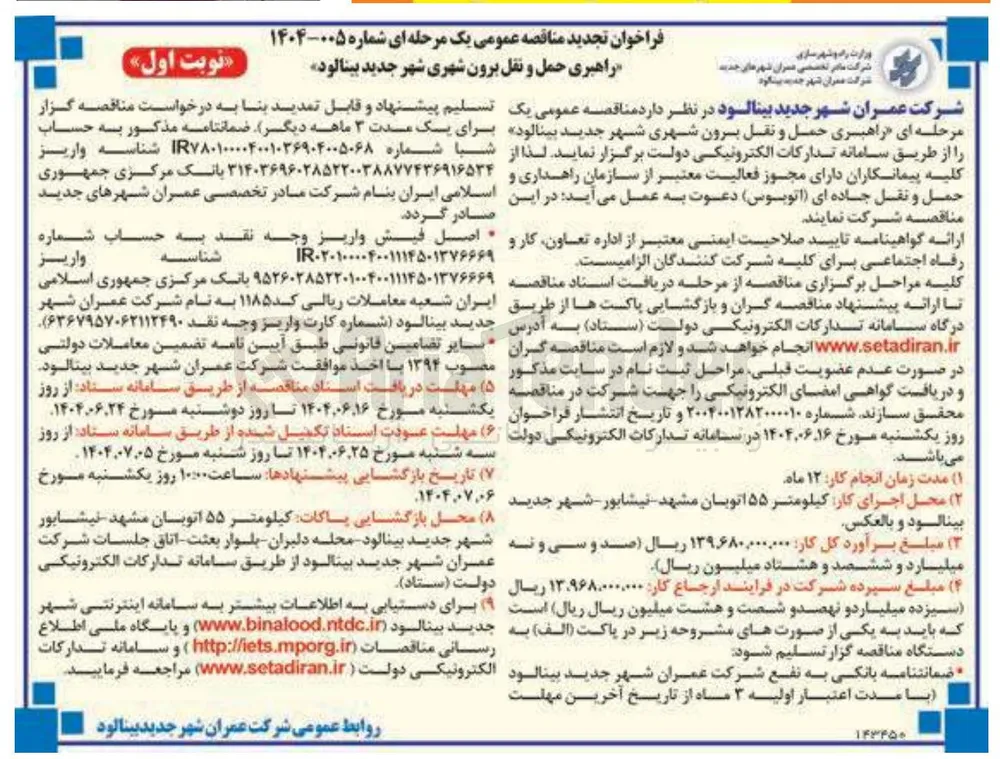 وزارت راه و شهرسازی
شرکت مادر تخصصی عمران شهرهای جدید
شرکت عمران شهر جدید بینالود
فراخوان تجدید مناقصه عمومی یک مرحله ای شماره ۰۰۵-۱۴۰۴
«راهبری حمل و نقل برون شهری شهر جدید بینالود»
«نوبت اول»
شرکت عمران شهر جدید بینالود در نظر دارد مناقصه عمومی یک
مرحله ای «راهبری حمل و نقل برون شهری شهر جدید بینالود»
را از طریق سامانه تدارکات الکترونیکی دولت برگزار نماید. لذا از
کلیه پیمانکاران دارای مجوز فعالیت معتبر از سازمان راهداری و
حمل و نقل جاده ای (اتوبوس) دعوت به عمل می آید: در این
مناقصه شرکت نمایند.
ارائه گواهینامه تایید صلاحیت ایمنی معتبر از اداره تعاون، کار و
رفاه اجتماعی برای کلیه شرکت کنندگان الزامیست.
کلیه مراحل برگزاری مناقصه از مرحله دریافت اسناد مناقصه
تا ارائه پیشنهاد مناقصه گران و بازگشایی پاکت ها از طریق
درگاه سامانه تدارکات الکترونیکی دولت (ستاد) به آدرس
www.setadiran.ir انجام خواهد شد و لازم است مناقصه گران
در صورت عدم عضویت قبلی، مراحل ثبت نام در سایت مذکور
و دریافت گواهی امضای الکترونیکی را جهت شرکت در مناقصه
محقق سازند. شماره ۲۰۰۴۰۰۱۲۸۲۰۰۰۰۱۰ و تاریخ انتشار فراخوان
روز یکشنبه مورخ ۱۴۰۴.۰۶.۱۶ در سامانه تدارکات الکترونیکی دولت
می باشد.
۱) مدت زمان انجام کار: ۱۲ ماه.
۲) محل اجرای کار: کیلومتر ۵۵ اتوبان مشهد-نیشابور-شهر جدید
بینالود و بالعکس.
۳) مبلغ برآورد کل کار: ۱۳۹,۶۸۰,۰۰۰,۰۰۰ ریال (صد و سی و نه
میلیارد و ششصد و هشتاد میلیون ریال).
۴) مبلغ سپرده شرکت در فرایند ارجاع کار: ۱۳,۹۶۸,۰۰۰,۰۰۰ ریال
(سیزده میلیارد و نهصد و شصت و هشت میلیون ریال ریال) است
که باید به یکی از صورت های مشروحه زیر در پاکت (الف) به
دستگاه مناقصه گزار تسلیم شود:
• ضمانتنامه بانکی به نفع شرکت عمران شهر جدید بینالود
(با مدت اعتبار اولیه ۳ ماه از تاریخ آخرین مهلت
تسلیم پیشنهاد و قابل تمدید بنا به درخواست مناقصه گزار
برای یک مدت ۳ ماهه دیگر). ضمانتنامه مذکور به حساب
شبا شماره IR۷۸۰۱۰۰۰۰۴۰۰۱۰۳۶۹۰۴۰۰۵۰۶۸ شناسه واریز
۳۱۴۰۳۶۹۶۰۲۸۵۲۲۰۰۳۸۸۷۷۴۳۶۹۱۶۵۳۴ بانک مرکزی جمهوری
اسلامی ایران بنام شرکت مادر تخصصی عمران شهرهای جدید
صادر گردد.
• اصل فیش واریز وجه نقد به حساب شماره
IR۰۲۰۱۰۰۰۰۴۰۰۱۱۱۴۵۰۱۳۷۶۶۶۹ شناسه واریز
۹۵۲۶۰۲۸۵۲۲۰۱۰۰۴۰۰۱۱۱۴۵۰۱۳۷۶۶۶۹ بانک مرکزی جمهوری اسلامی
ایران شعبه معاملات ریالی کد ۱۱۸۵ به نام شرکت عمران شهر
جدید بینالود (شماره کارت واریز وجه نقد ۶۳۶۷۹۵۷۰۶۲۱۱۲۴۹۰).
• سایر تضامین قانونی طبق آیین نامه تضمین معاملات دولتی
مصوب ۱۳۹۴ با اخذ موافقت شرکت عمران شهر جدید بینالود.
۵) مهلت دریافت اسناد مناقصه از طریق سامانه ستاد: از روز
یکشنبه مورخ ۱۴۰۴.۰۶.۱۶ تا روز دوشنبه مورخ ۱۴۰۴.۰۶.۲۴.
۶) مهلت عودت اسناد تکمیل شده از طریق سامانه ستاد: از روز
سه شنبه مورخ ۱۴۰۴.۰۶.۲۵ تا روز شنبه مورخ ۱۴۰۴.۰۷.۰۵.
۷) تاریخ بازگشایی پیشنهادها: ساعت ۱۰:۰۰ روز یکشنبه مورخ
۱۴۰۴.۰۷.۰۶.
۸) محل بازگشایی پاکات: کیلومتر ۵۵ اتوبان مشهد-نیشابور
شهر جدید بینالود-محله دلبران-بلوار بعثت-اتاق جلسات شرکت
عمران شهر جدید بینالود از طریق سامانه تدارکات الکترونیکی
دولت (ستاد).
۹) برای دستیابی به اطلاعات بیشتر به سامانه اینترنتی شهر
جدید بینالود (www.binalood.ntdc.ir) و پایگاه ملی اطلاع
رسانی مناقصات (http://iets.mporg.ir ) و سامانه تدارکات
الکترونیکی دولت ( www.setadiran.ir) مراجعه فرمایید.
روابط عمومی شرکت عمران شهر جدید بینالود
۱۴۳۴۵۰